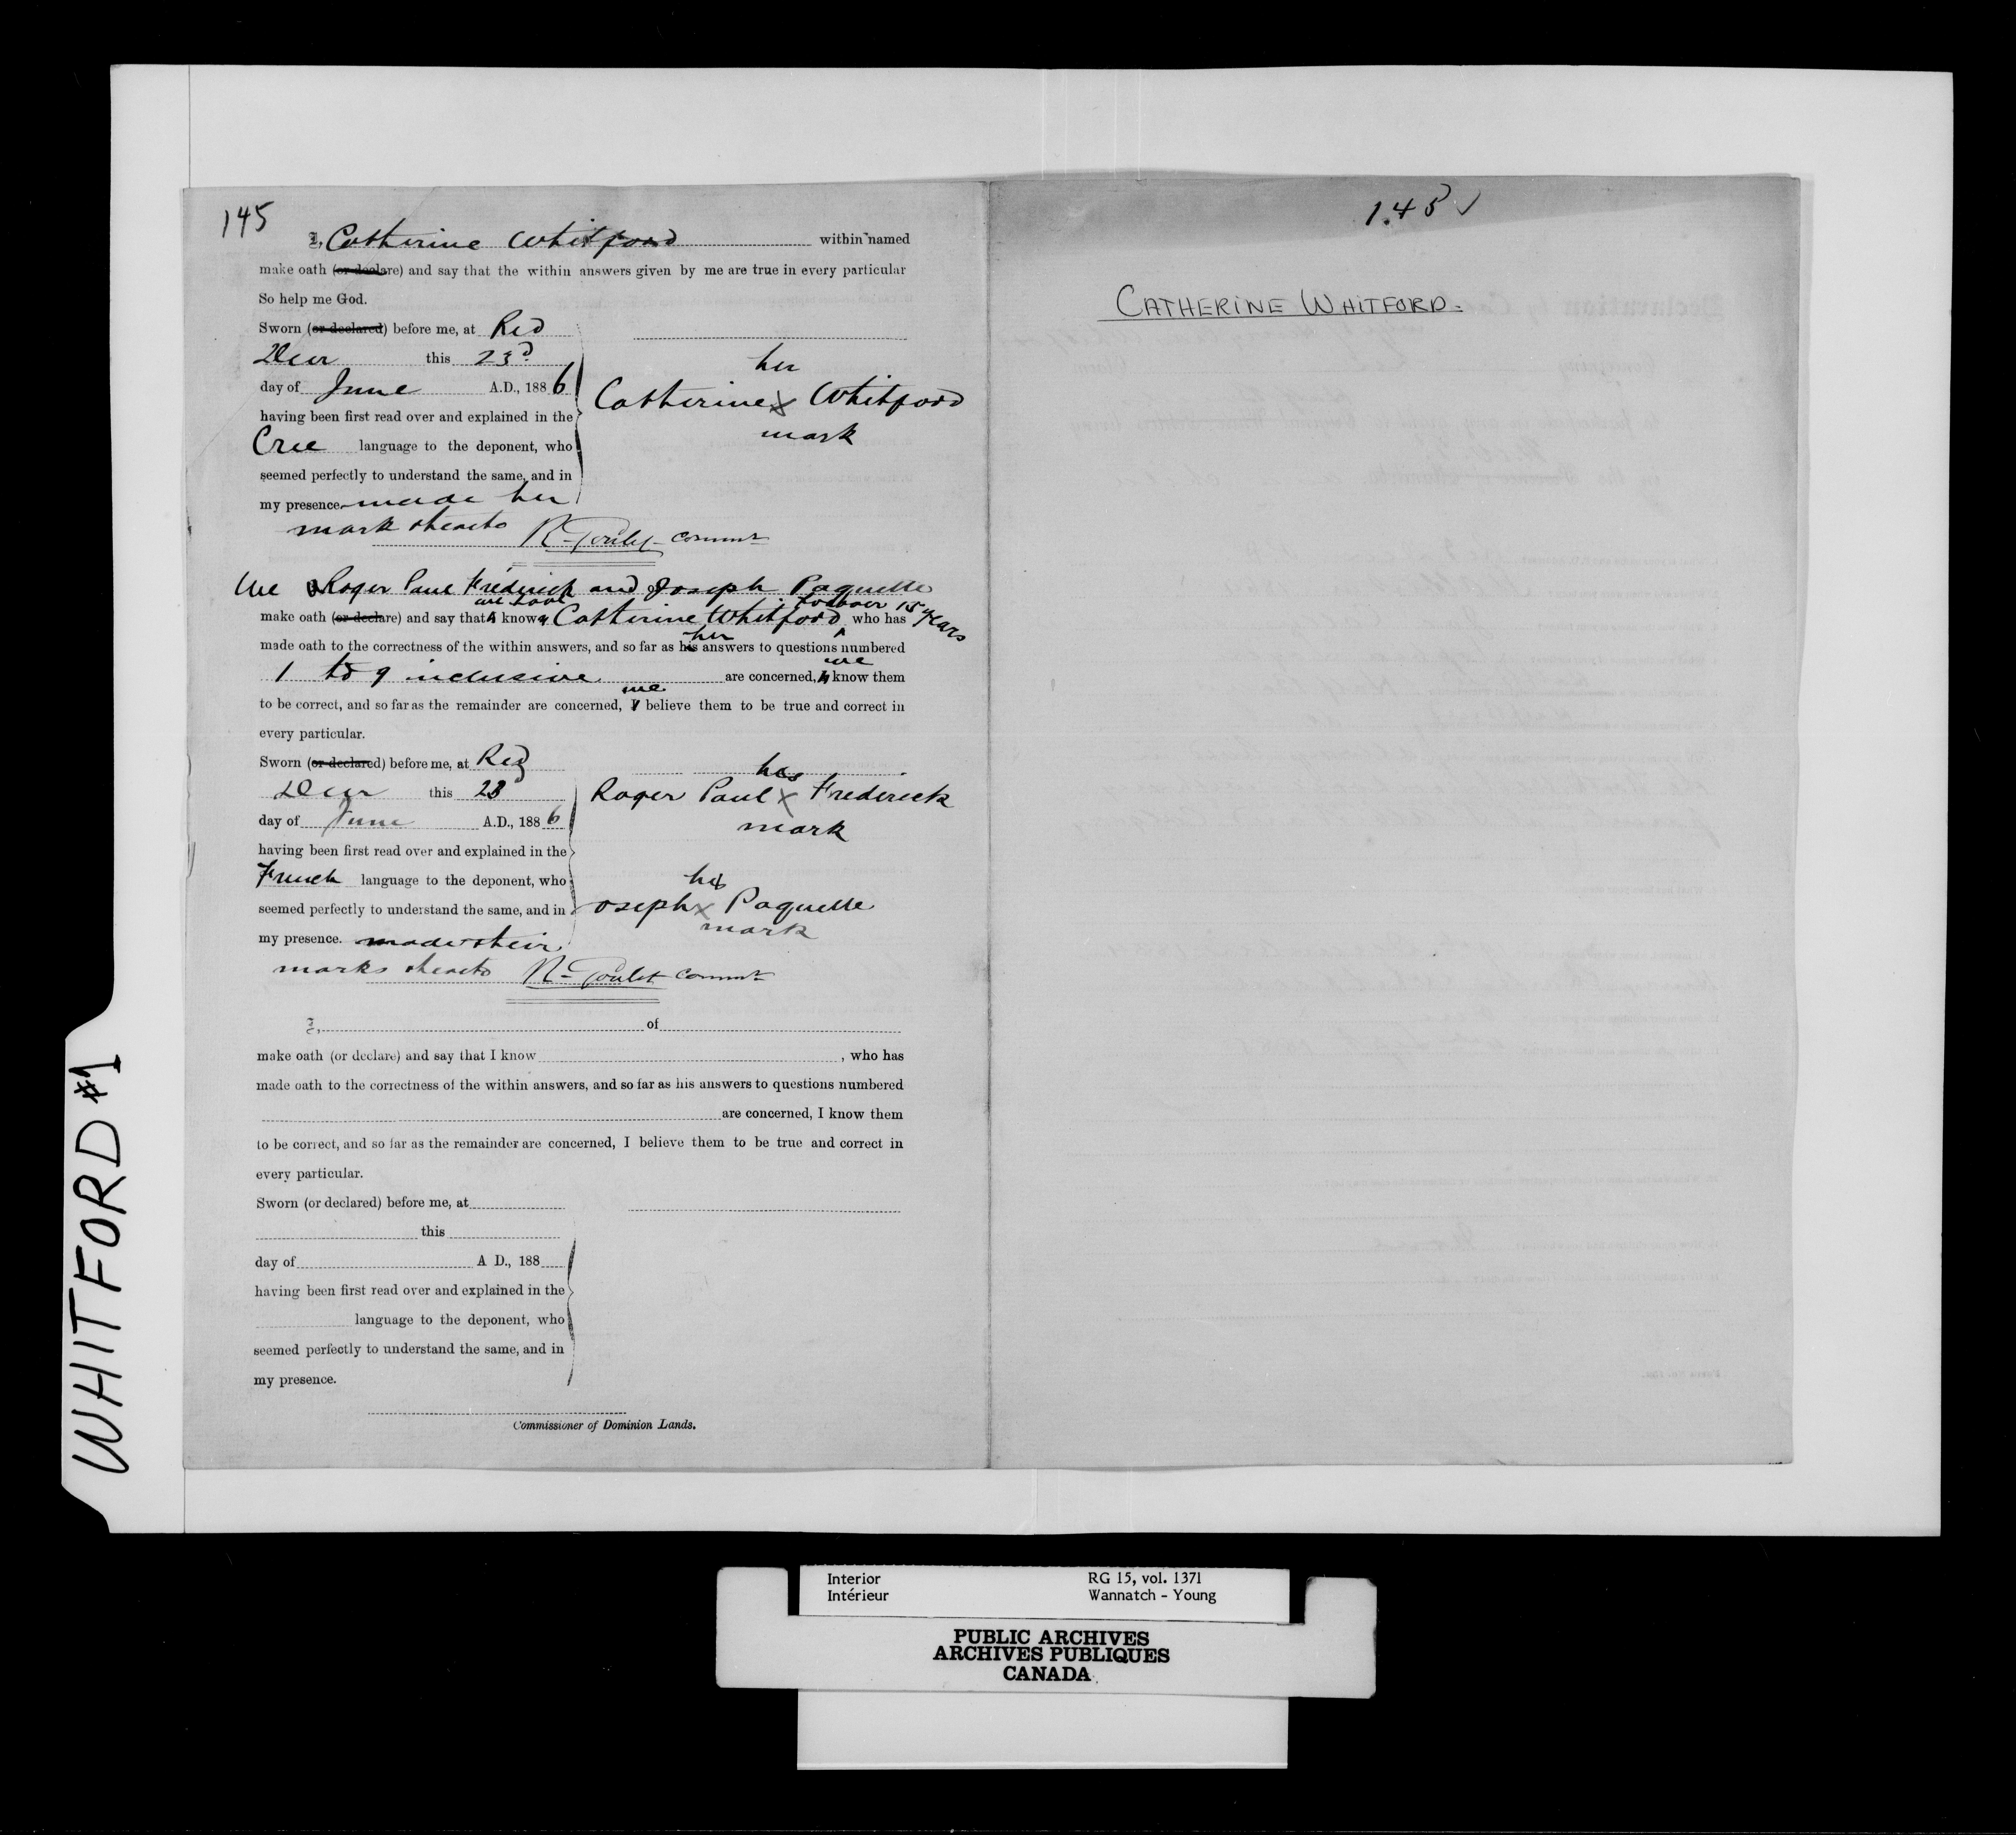 145
I, Catherine Whitford within named
make oath (or declare) and say that the within answers given by me are true in every particular
So help me God.
Sworn (or declared) before me, at Red
Deer this 23d
day of June A.D., 1886
having been first read over and explained in the
Cree language to the deponent, who
seemed perfectly to understand the same, and in
my presence made her
mark thereto R. Goulet commr
her
Catherine X Whitford
mark
We Roger Paul Frederick and Joseph Paquette
we have for over 15 years
make oath (or declare) and say that I know Catherine Whitford who has
her
made oath to the correctness of the within answers, and so far as his answers to questions numbered
we
1 to 9 inclusive are concerned, I know them
we
to be correct, and so far as the remainder are concerned, I believe them to be true and correct in
every particular.
Sworn (or declared) before me, at Red
Deer this 23
day of June A.D., 1886
having been first read over and explained in the
French language to the deponent, who
seemed perfectly to understand the same, and in
my presence. made their
marks thereto R. Goulet commr
his
Roger Paul X Frederick
mark
his
Joseph X Paquette
mark
I, of
make oath (or declare) and say that I know , who has
made oath to the correctness of the within answers, and so far as his answers to questions numbered
are concerned, I know them
to be correct, and so far as the remainder are concerned, I believe them to be true and correct in
every particular.
Sworn (or declared) before me, at
this
day of A D., 188
having been first read over and explained in the
language to the deponent, who
seemed perfectly to understand the same, and in
my presence.
Commissioner of Dominion Lands.
145 ✓
CATHERINE WHITFORD.
WHITFORD #1
Interior RG 15, vol. 1371
Intérieur Wannatch - Young
PUBLIC ARCHIVES
ARCHIVES PUBLIQUES
CANADA